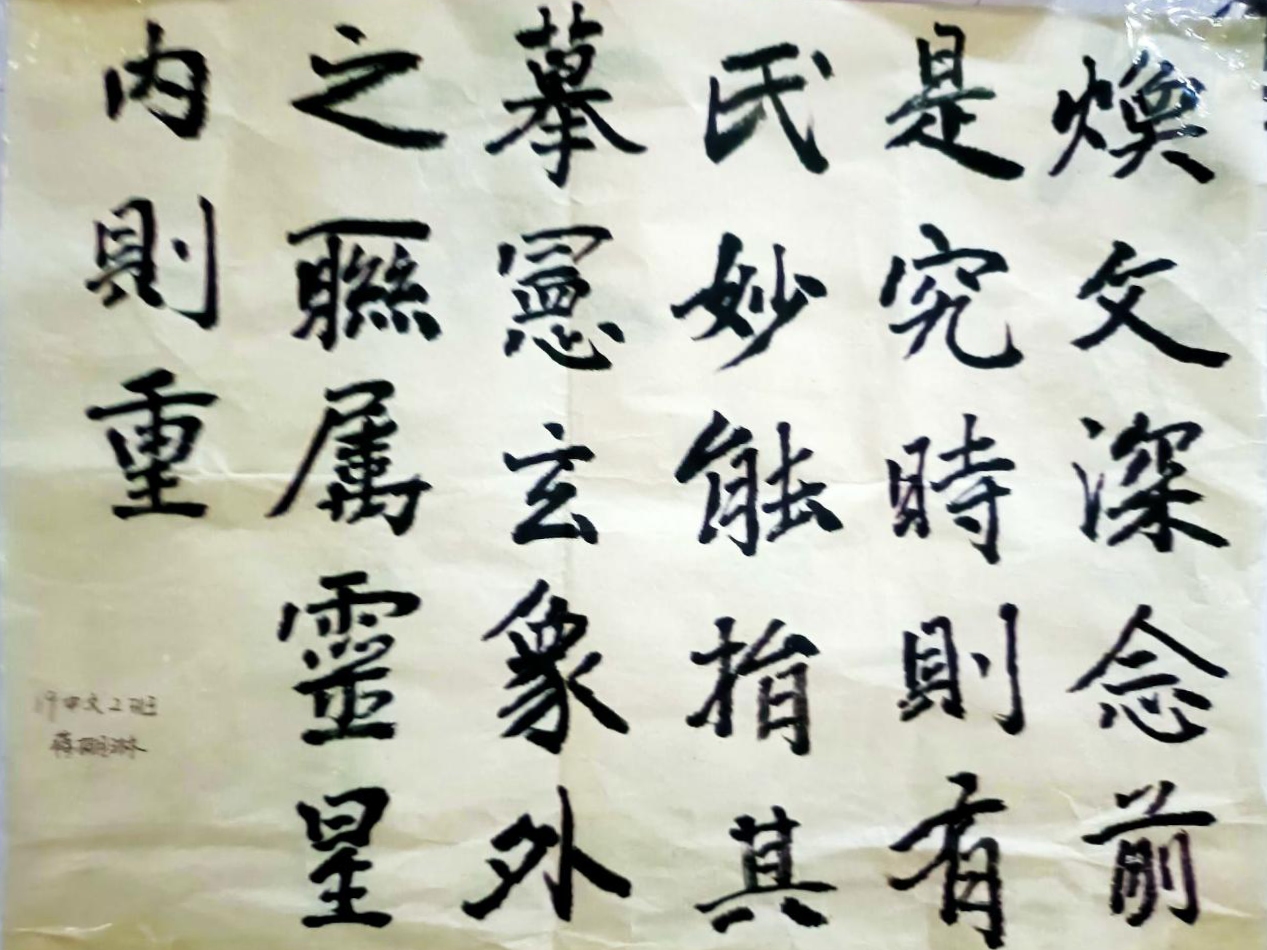 煥文深念前
是究時則有
民妙能指其
摹憲玄象外
之聯属靈星
内則重
19中文2班